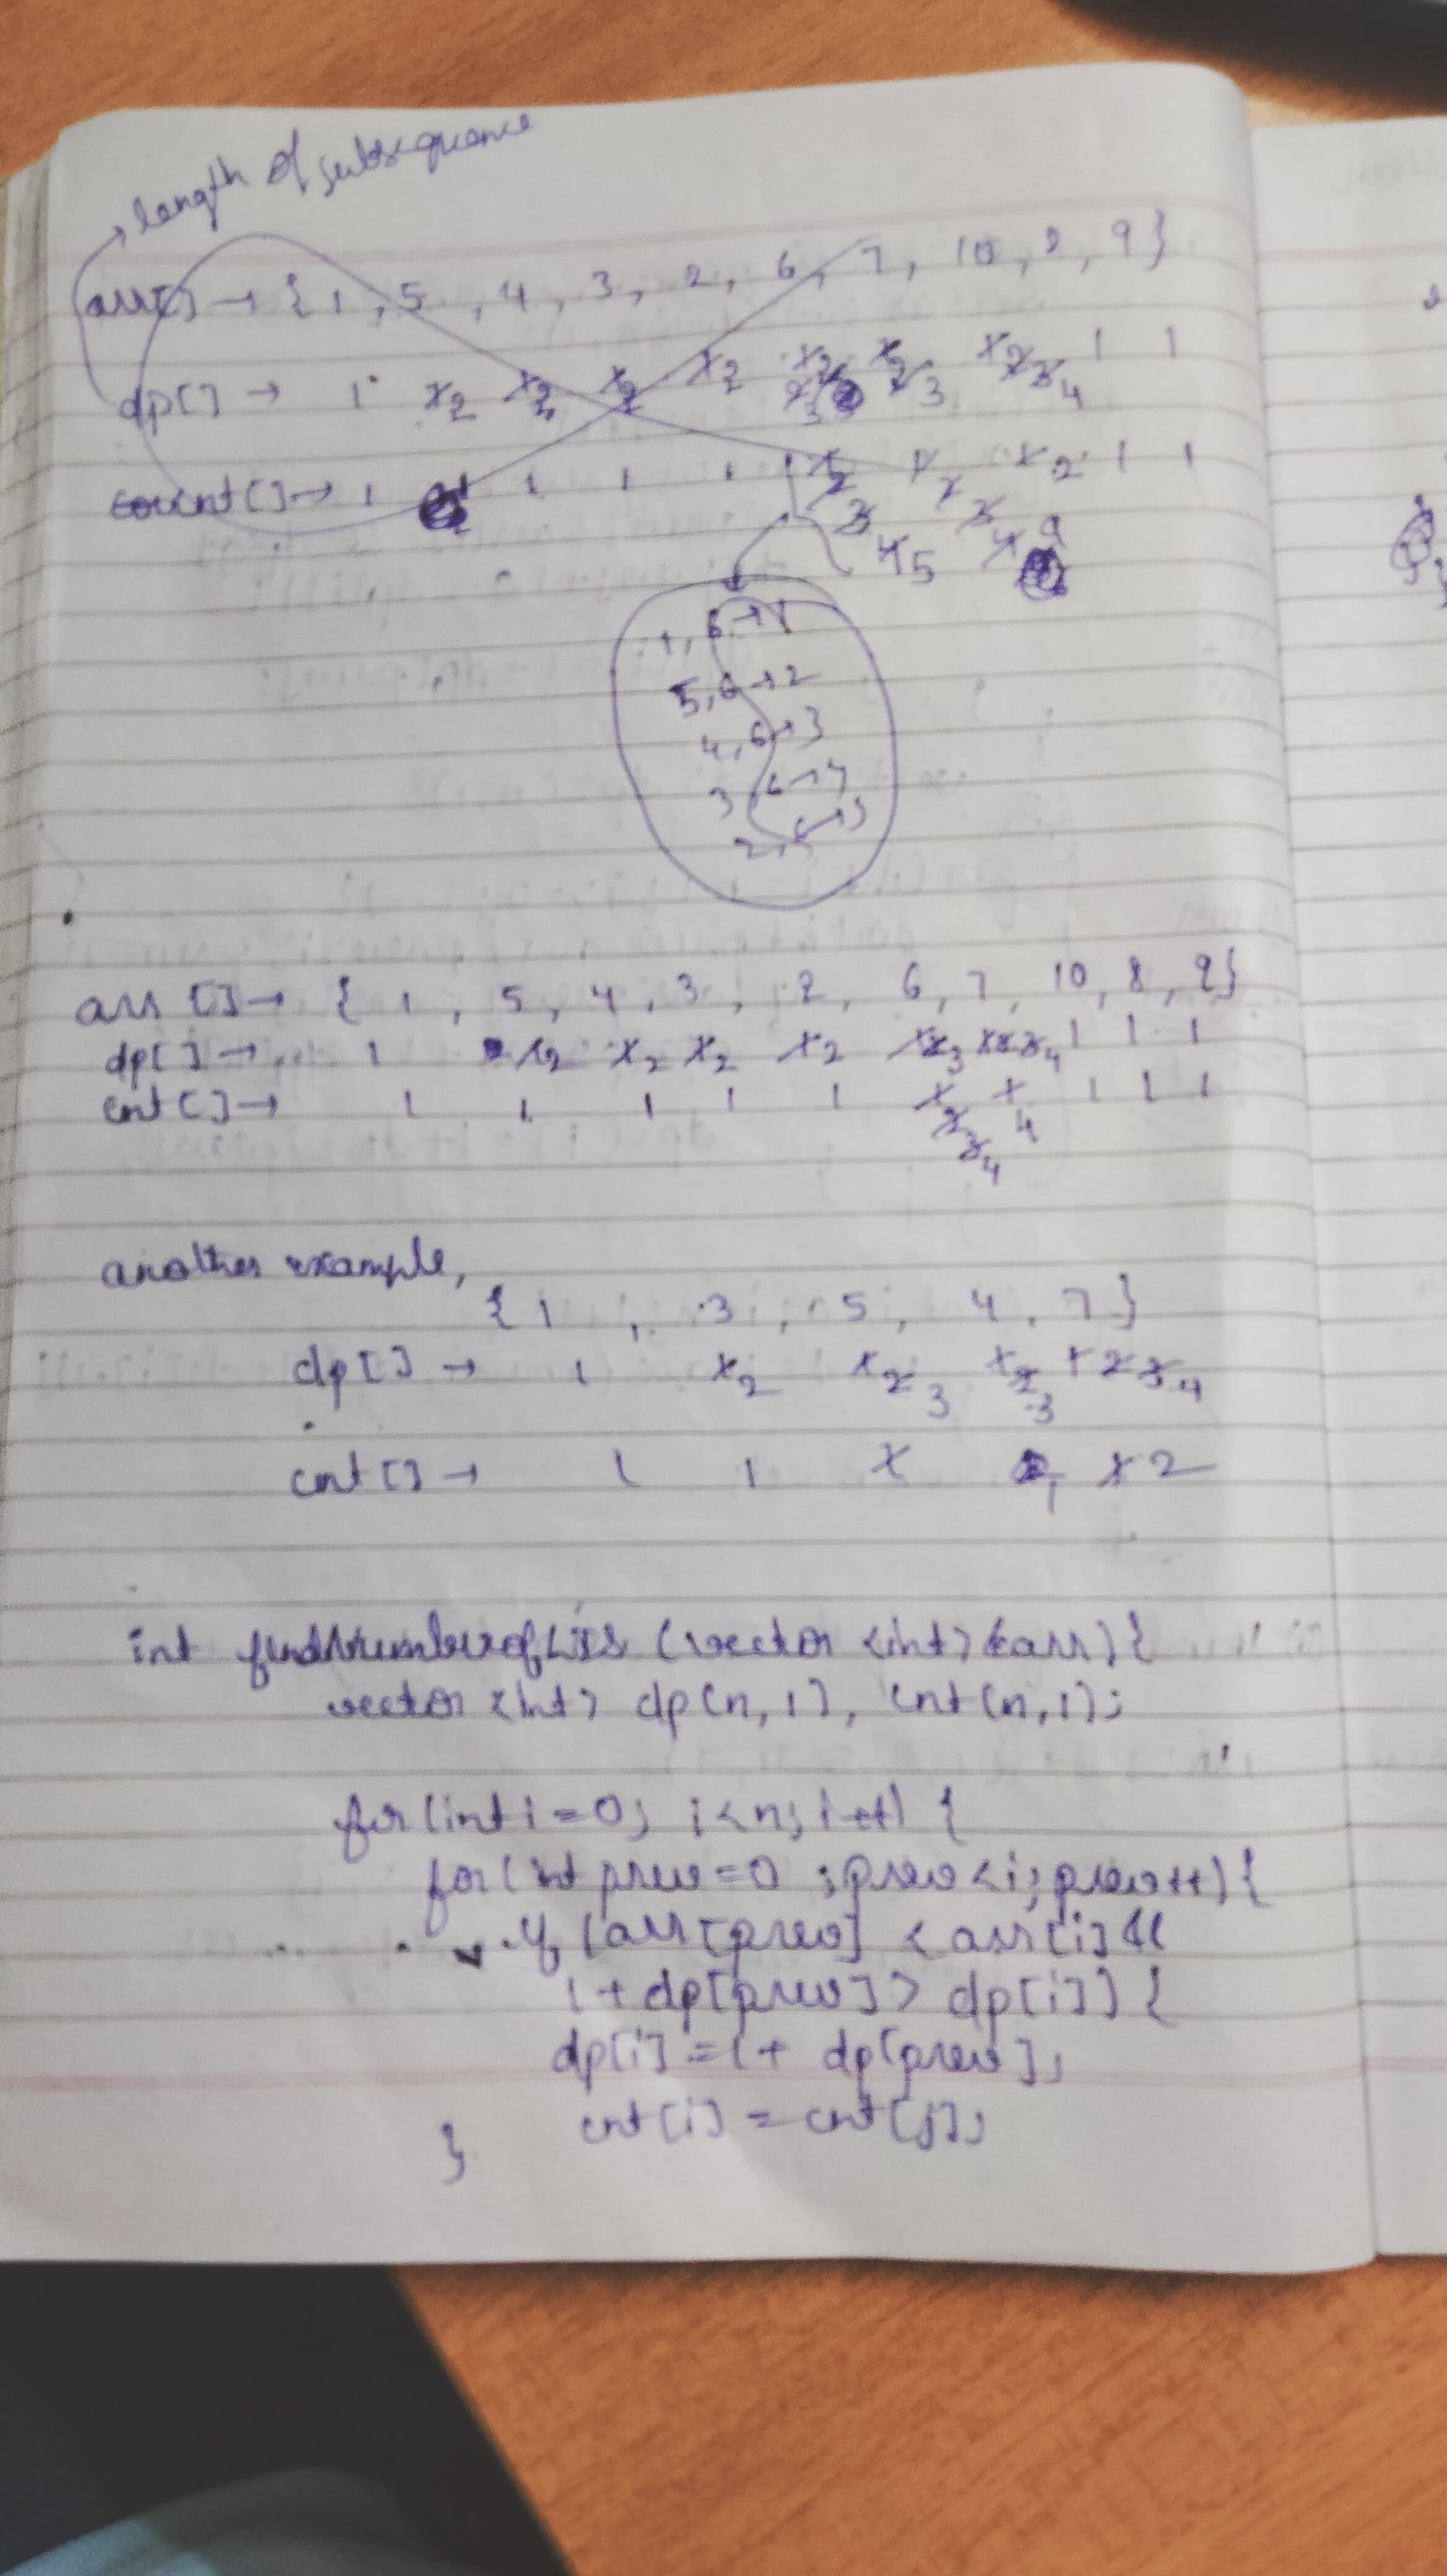 length of subsequence
arr[] → {1, 5, 4, 3, 2, 6, 7, 10, 8, 9}
dp[] → 1 1 2 1 2 1 2 1 2 1 2 2 3 1 2 3 1 2 3 4 1 1
count[] → 1 1 1 1 1 1 2 3 4 5 1 2 3 4 1 2 1 1
1, 6 → 1
5, 6 → 2
4, 6 → 3
3, 6 → 4
2, 6 → 5
arr[] → {1, 5, 4, 3, 2, 6, 7, 10, 8, 9}
dp[] → 1 1 2 1 2 1 2 1 2 1 2 3 1 2 3 4 1 1 1
cnt[] → 1 1 1 1 1 1 2 3 4 1 4 1 1 1
another example,
{1, 3, 5, 4, 7}
dp[] → 1 1 2 1 2 3 1 2 3 1 2 3 4
cnt[] → 1 1 1 1 1 2
int findNumberofLIS (vector <int> &arr) {
vector <int> dp(n, 1), cnt(n, 1);
for(int i = 0; i < n; i++) {
for(int prev = 0; prev < i; prev++) {
if (arr[prev] < arr[i] &&
1 + dp[prev] > dp[i]) {
dp[i] = 1 + dp[prev];
cnt[i] = cnt[j];
}